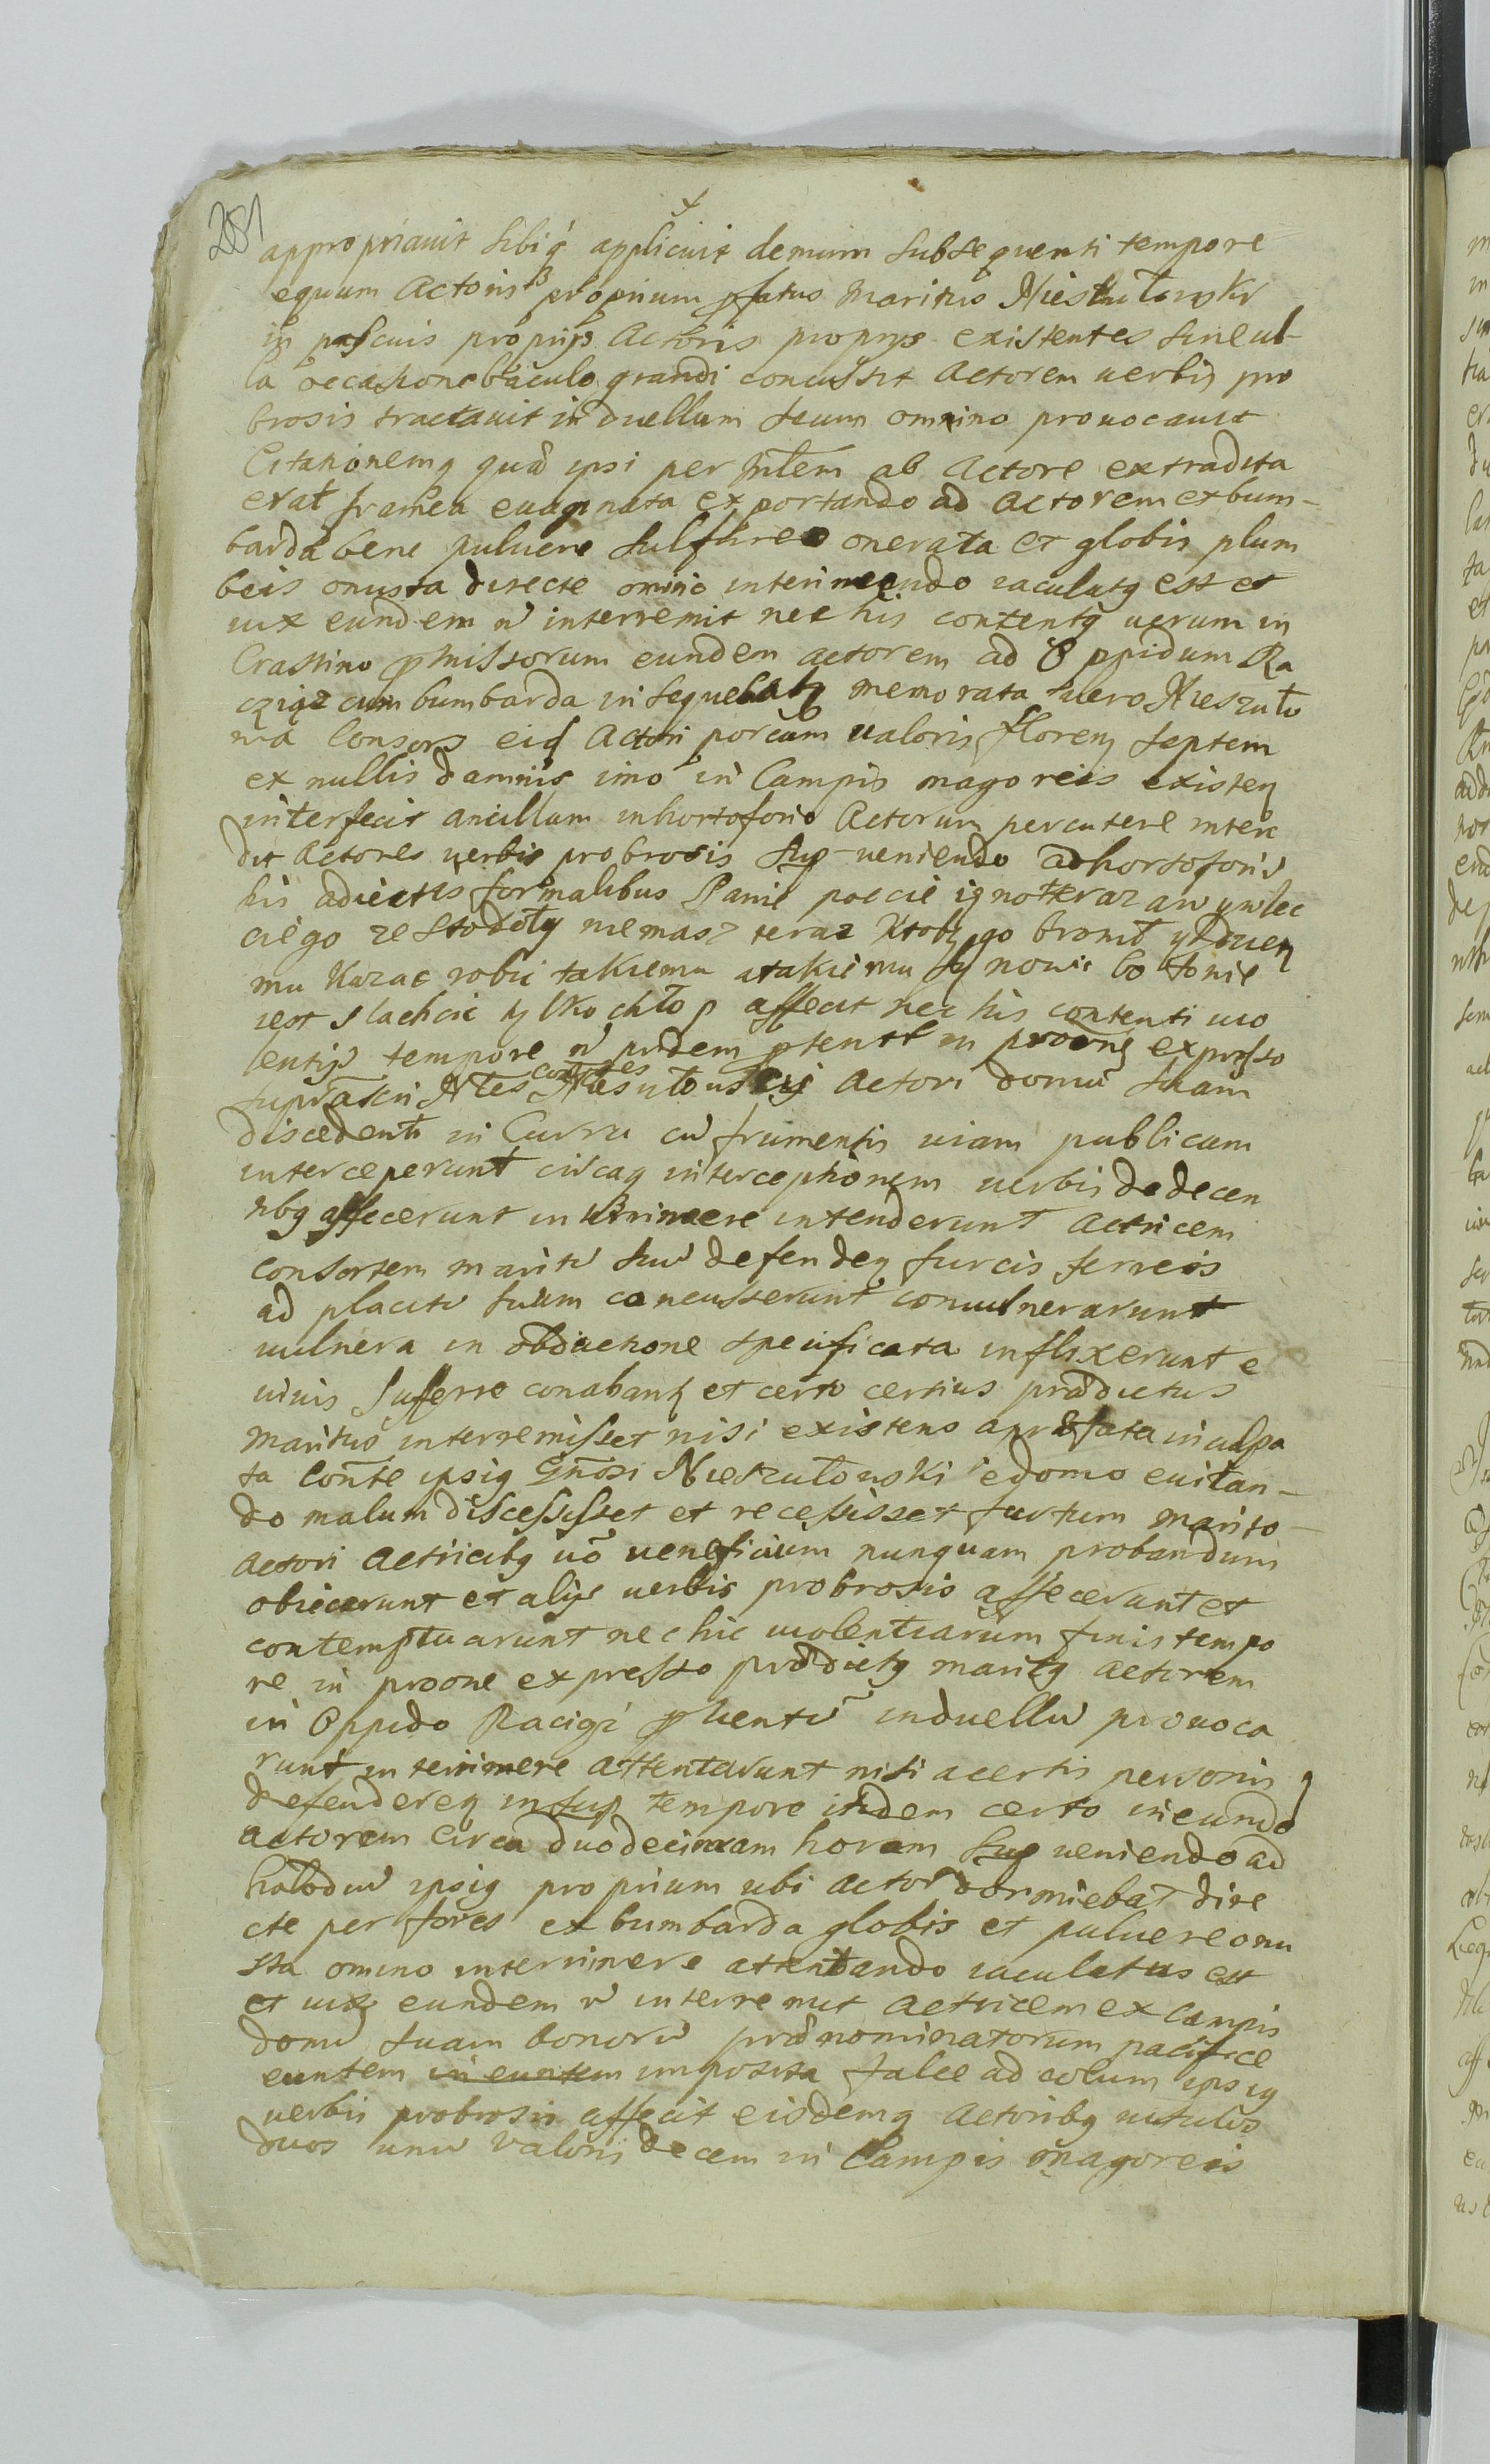 281
appropriavit sibiq applicuit demum subsequenti tempore
equum Actoris proprium pfatus Maritus Nieszułowski
in pascuis proprijs Actoris proprijs existentes sine ul-
la occasione baculo grandi concussit Actorem verbis pro
brosis tractavit in duellum secum omnino provocavit
Citationemq quâ ipsi per Mtem ab Actore extradita
erat framea evaginata exportando ad Actorem ex bum-
barda bene pulvere sulfureo onerata et globis plum
beis onusta directe omino interimendo iaculatq est et
vix eundem n̄ interremit nec his contentq verum in
Crastino pmissorum eundem Actorem ad Oppidum Ra
cziąz cum bumbarda insequebatq memorata vero Nieszuło
wa Consors eid Actori porcum valoris florenq septem
ex nullis damnis imo in Campis magoreis existenq
interfecit ancillam in hortoforio Actorum percutere inten
dit Actores verbis probrosis sup veniendo ad hortoforiu
his adiectis formalibus Panie poecie ignoteraz aw ywlec
ciego ze Stodoły niemasz teraz Ktobq go bronił
mu kazac robic takiemu atakiemu Sy nowi bo tonie
iest slachcic tylko chłop affecit nec his contenti vio
lentijs tempore n̄ pridem ptento in proone expresso
suprascri Ntes coniuges Niesułouscij Actori domū suam
discedenti in Curru cū frumentis viam publicam
interceperunt circaq interceptionem verbis dedecen
tibq affecerunt interimere intenderunt Actricem
consortem maritū suū defendenq furcis ferreis
ad placitū suum concusserunt convulnerarunt
vulnera in obductione specificata inflixerunt e
vivis sufferre conabantq et certo certius prædictus
maritus interremisset nisi existens a præfata inculpa
ta Conte ipsiq Gnosi Nieszułowski e domo evitan-
do malum discessisset et recessisset furtum marito-
Actori Actricibq vō veneficium nunquam probandum
obiecerunt et alijs verbis probrosis affecerunt et
contemptuarunt nec hic violentiarum finis tempo
re in proone expresso prædictq maritq Actorem
in Oppido Raciąz pventū in duellū provoca
runt interimere attentarunt nisi a certis personis
defenderenq insup tempore itidem certo ineundo
Actorem circa duodecimam horam sup veniendo ad
halodiū ipsiq proprium ubi Actor dormiebat dire
cte per fores ex bumbarda globis et pulvere onu
sta omino interimere attentando iaculatus est
et vix eundem n̄ interremit Actricem ex Campis
domū suam bonorū prænominatorum pacifice
euntem in euntem imposita falce ad colum ipsiq
verbis probrosis affecit eisdemq Actoribq vitulos
duos unū valoris decem in Campis magoreis